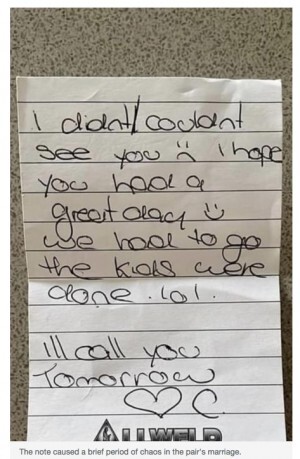 I didnt/couldnt
see you ☹ I hope
you had a
great day ☺
we had to go
the kids were
done. lol.
Ill call you
Tomorrow
♡ C.
The note caused a brief period of chaos in the pair's marriage.